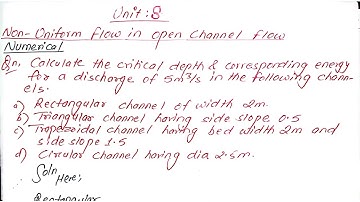 Unit:8
Non-Uniform flow in open Channel flow
Numerical
Qn. Calculate the critical depth & corresponding energy
for a discharge of 5m³/s in the following chann-
els.
a) Rectangular channel of width 2m.
b) Triangular channel having side slope 0.5
c) Trapezoidal channel having bed width 2m and
side slope 1.5
d) Circular channel having dia 2.5m.
Soln
Here;
Rectangular